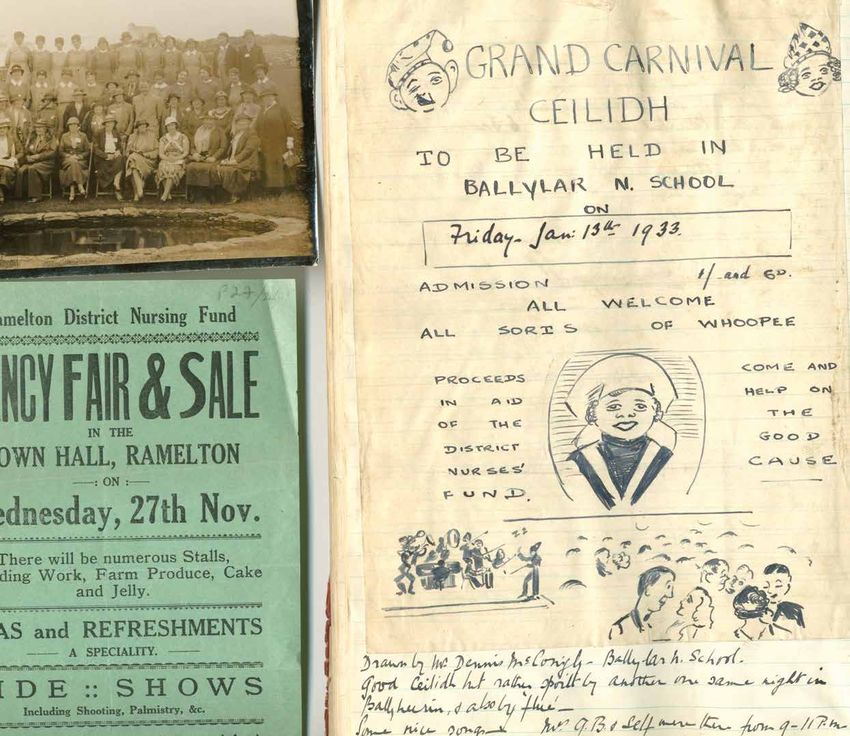 P27/2
amelton District Nursing Fund
NCY FAIR & SALE
IN THE
OWN HALL, RAMELTON
—: ON :—
ednesday, 27th Nov.
There will be numerous Stalls,
ding Work, Farm Produce, Cake
and Jelly.
AS and REFRESHMENTS
A SPECIALITY.
IDE :: SHOWS
Including Shooting, Palmistry, &c.
GRAND CARNIVAL
CEILIDH
TO BE HELD IN
BALLYLAR N. SCHOOL
ON
Friday - Jan: 13th 1933.
ADMISSION 1/- and 6D.
ALL WELCOME
ALL SORTS OF WHOOPEE
PROCEEDS
IN AID
OF THE
DISTRICT
NURSES'
FUND.
COME AND
HELP ON
THE
GOOD
CAUSE
ZZ
Drawn by Mr Dennis McGonigly - Ballylar N. School.
Good Ceilidh but rather spoilt by another one same night in
Ballyheerin, & also by "flue" -
Some nice songs - Mr. G.B. & Self were there from 9-11 P.m